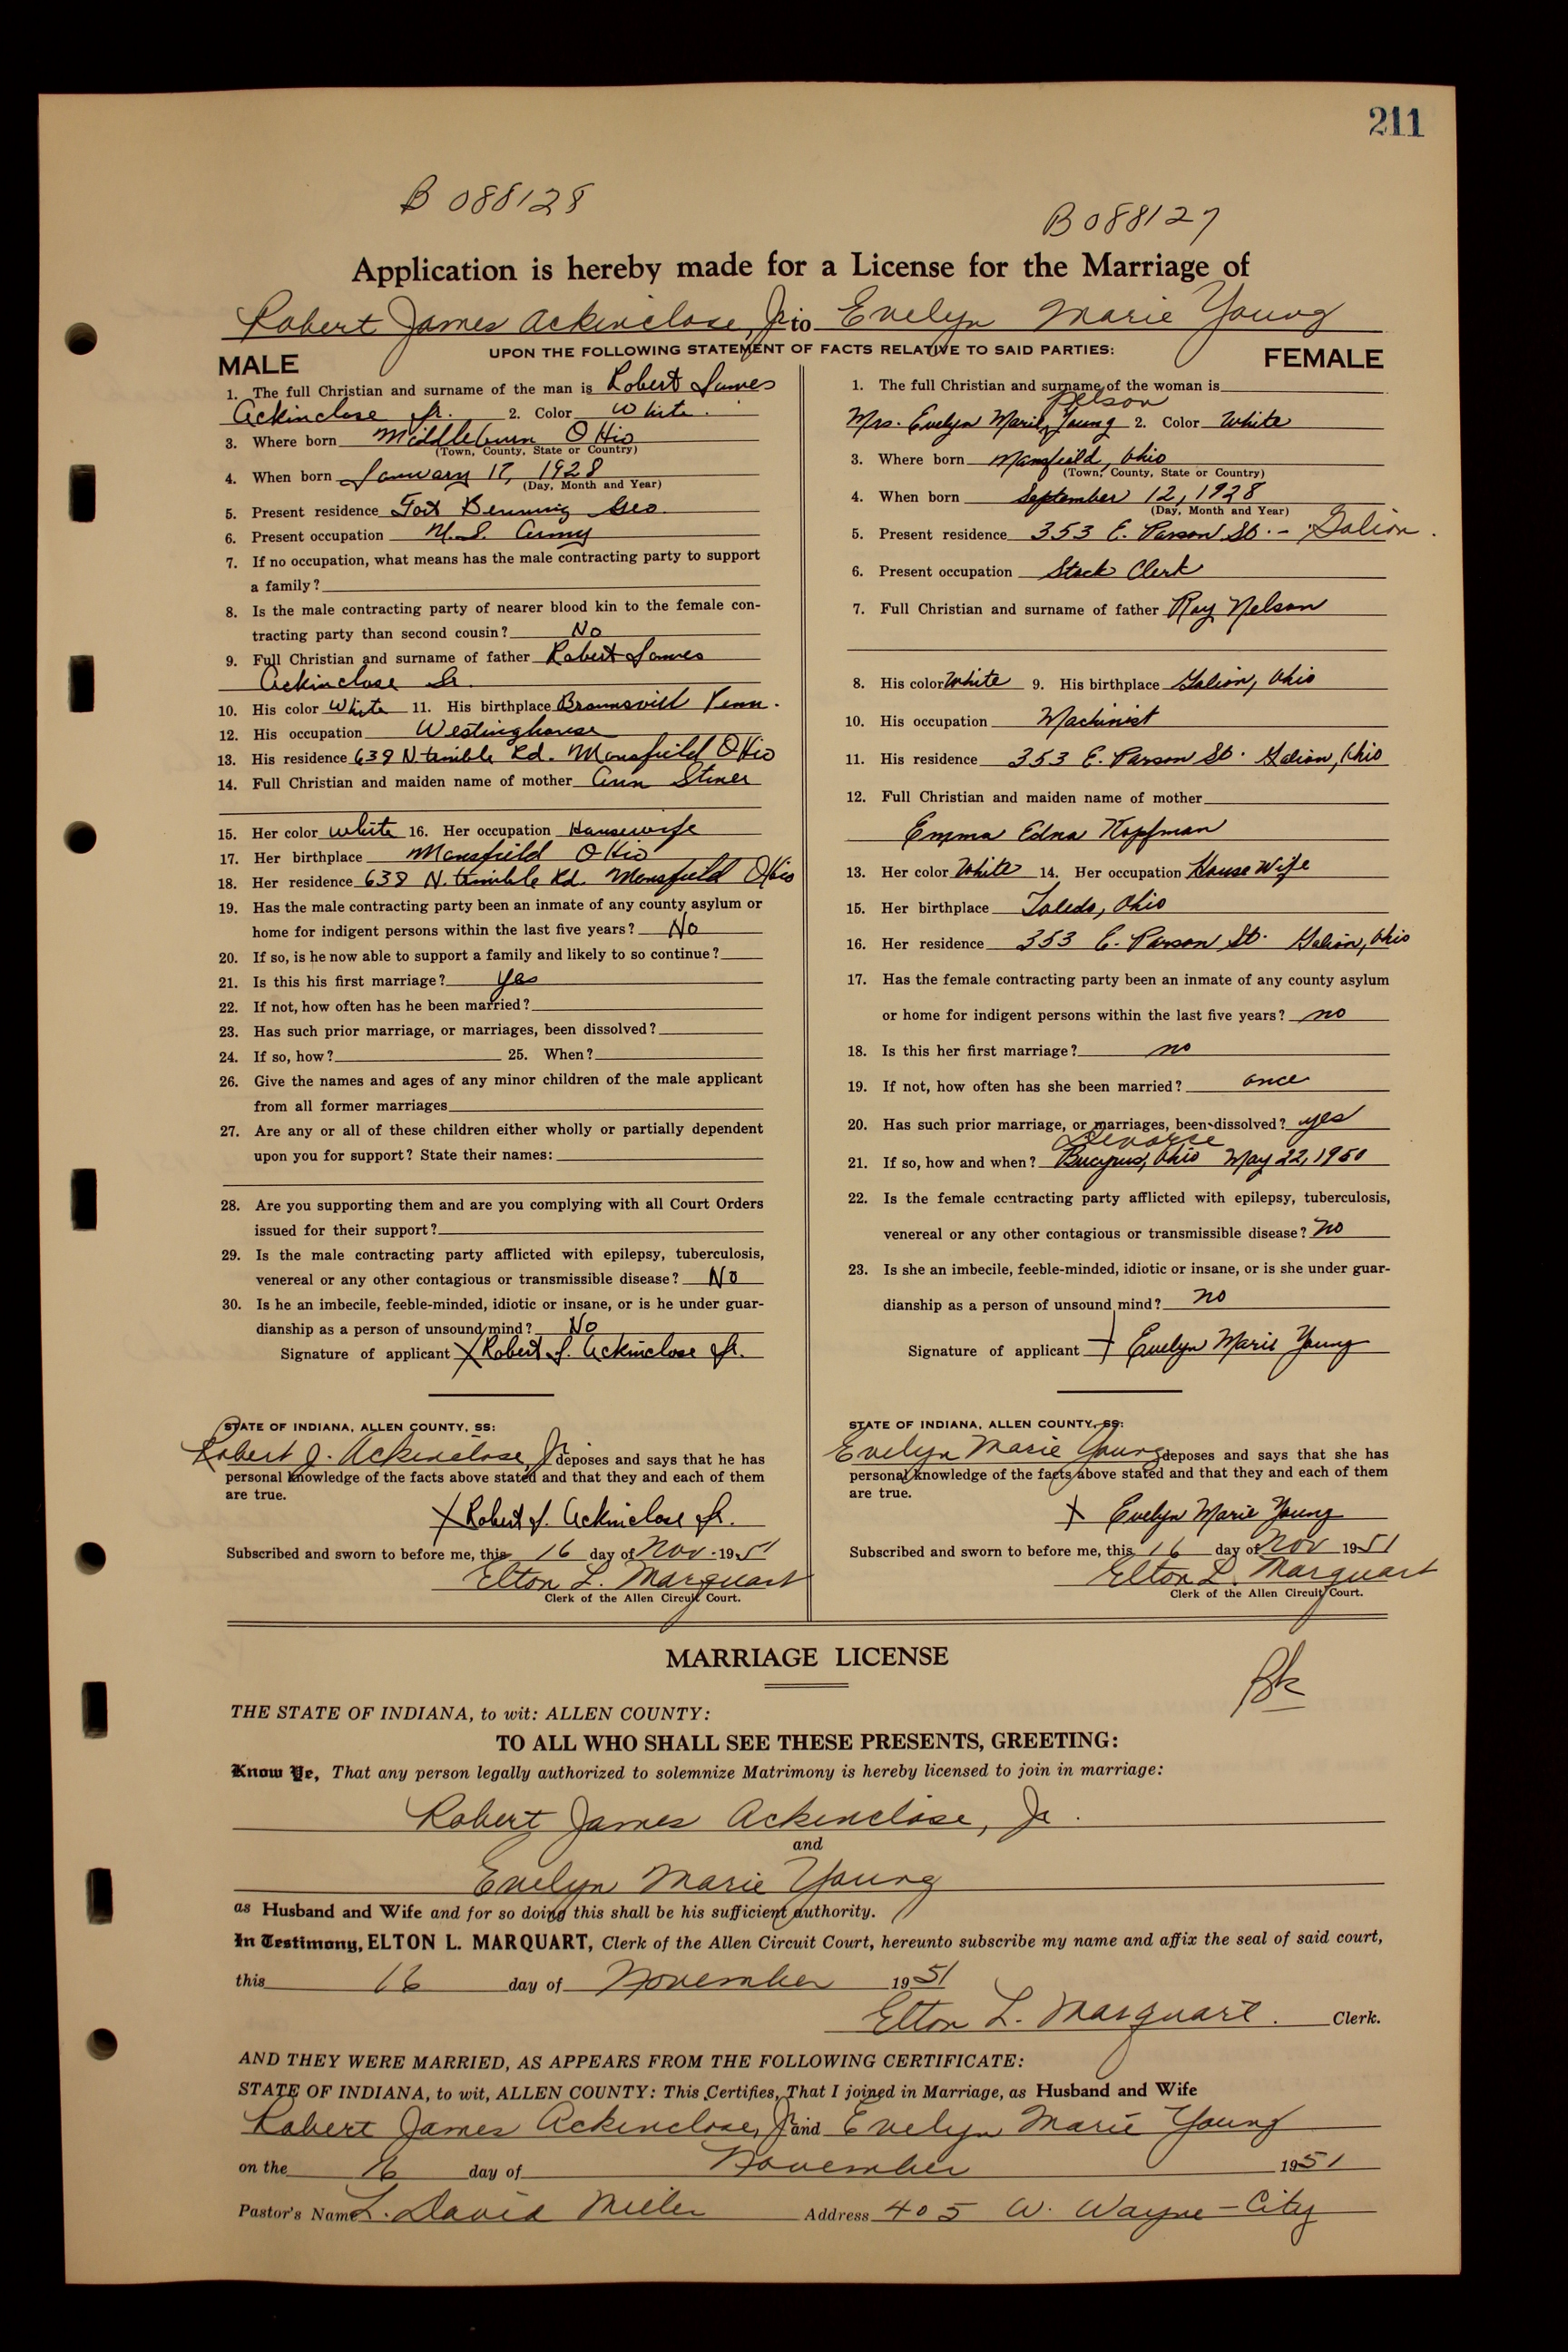 211
B 088128
B 088127
Application is hereby made for a License for the Marriage of
Robert James Ackinclose, Jr. to Evelyn Marie Young
UPON THE FOLLOWING STATEMENT OF FACTS RELATIVE TO SAID PARTIES:
MALE
1. The full Christian and surname of the man is Robert James
Ackinclose Jr. 2. Color White.
3. Where born Middleburn OHio
(Town, County, State or Country)
4. When born January 17, 1928
(Day, Month and Year)
5. Present residence Fort Benning Geo.
6. Present occupation U.S. Army
7. If no occupation, what means has the male contracting party to support
a family?
8. Is the male contracting party of nearer blood kin to the female con-
tracting party than second cousin? No
9. Full Christian and surname of father Robert James
Ackinclose Sr.
10. His color White 11. His birthplace Brownsvill Penn.
12. His occupation Westinghouse
13. His residence 638 N trimble Rd. Mansfield OHio
14. Full Christian and maiden name of mother Ann Stiner
15. Her color white 16. Her occupation Housewife
17. Her birthplace Mansfield OHio
18. Her residence 638 N. trimble Rd. Mansfield Ohio
19. Has the male contracting party been an inmate of any county asylum or
home for indigent persons within the last five years? No
20. If so, is he now able to support a family and likely to so continue?
21. Is this his first marriage? yes
22. If not, how often has he been married?
23. Has such prior marriage, or marriages, been dissolved?
24. If so, how? 25. When?
26. Give the names and ages of any minor children of the male applicant
from all former marriages
27. Are any or all of these children either wholly or partially dependent
upon you for support? State their names:
28. Are you supporting them and are you complying with all Court Orders
issued for their support?
29. Is the male contracting party afflicted with epilepsy, tuberculosis,
venereal or any other contagious or transmissible disease? No
30. Is he an imbecile, feeble-minded, idiotic or insane, or is he under guar-
dianship as a person of unsound mind? No
Signature of applicant X Robert J. Ackinclose Jr.
STATE OF INDIANA, ALLEN COUNTY, SS:
Robert J. Ackinclose, Jr. deposes and says that he has
personal knowledge of the facts above stated and that they and each of them
are true.
X Robert J. Ackinclose Jr.
Subscribed and sworn to before me, this 16 day of Nov. 1951
Elton L. Marquart
Clerk of the Allen Circuit Court.
FEMALE
1. The full Christian and surname of the woman is
Nelson
Mrs. Evelyn Marie Young 2. Color White
3. Where born Mansfield, Ohio
(Town, County, State or Country)
4. When born September 12, 1928
(Day, Month and Year)
5. Present residence 353 E. Parson St. - Galion.
6. Present occupation Stock Clerk
7. Full Christian and surname of father Ray Nelson
8. His color White 9. His birthplace Galion, Ohio
10. His occupation Machinist
11. His residence 353 E. Parson St. Galion, Ohio
12. Full Christian and maiden name of mother
Emma Edna Kopfman
13. Her color White 14. Her occupation House Wife
15. Her birthplace Toledo, Ohio
16. Her residence 353 E. Parson St. Galion, Ohio
17. Has the female contracting party been an inmate of any county asylum
or home for indigent persons within the last five years? no
18. Is this her first marriage? no
19. If not, how often has she been married? once
20. Has such prior marriage, or marriages, been dissolved? yes
Devorse
21. If so, how and when? Bucyrus, Ohio May 22, 1950
22. Is the female contracting party afflicted with epilepsy, tuberculosis,
venereal or any other contagious or transmissible disease? no
23. Is she an imbecile, feeble-minded, idiotic or insane, or is she under guar-
dianship as a person of unsound mind? no
Signature of applicant X Evelyn Marie Young
STATE OF INDIANA, ALLEN COUNTY, SS:
Evelyn Marie Young deposes and says that she has
personal knowledge of the facts above stated and that they and each of them
are true.
X Evelyn Marie Young
Subscribed and sworn to before me, this 16 day of Nov 1951
Elton L. Marquart
Clerk of the Allen Circuit Court.
MARRIAGE LICENSE
THE STATE OF INDIANA, to wit: ALLEN COUNTY:
TO ALL WHO SHALL SEE THESE PRESENTS, GREETING:
Know Ye, That any person legally authorized to solemnize Matrimony is hereby licensed to join in marriage:
Robert James Ackinclose, Jr.
and
Evelyn Marie Young
as Husband and Wife and for so doing this shall be his sufficient authority.
In Testimony, ELTON L. MARQUART, Clerk of the Allen Circuit Court, hereunto subscribe my name and affix the seal of said court,
this 16 day of November 1951
Elton L. Marquart. Clerk.
AND THEY WERE MARRIED, AS APPEARS FROM THE FOLLOWING CERTIFICATE:
STATE OF INDIANA, to wit, ALLEN COUNTY: This Certifies, That I joined in Marriage, as Husband and Wife
Robert James Ackinclose, Jr. and Evelyn Marie Young
on the 16 day of November 1951
Pastor's Name L. David Miller Address 405 W. Wayne - City